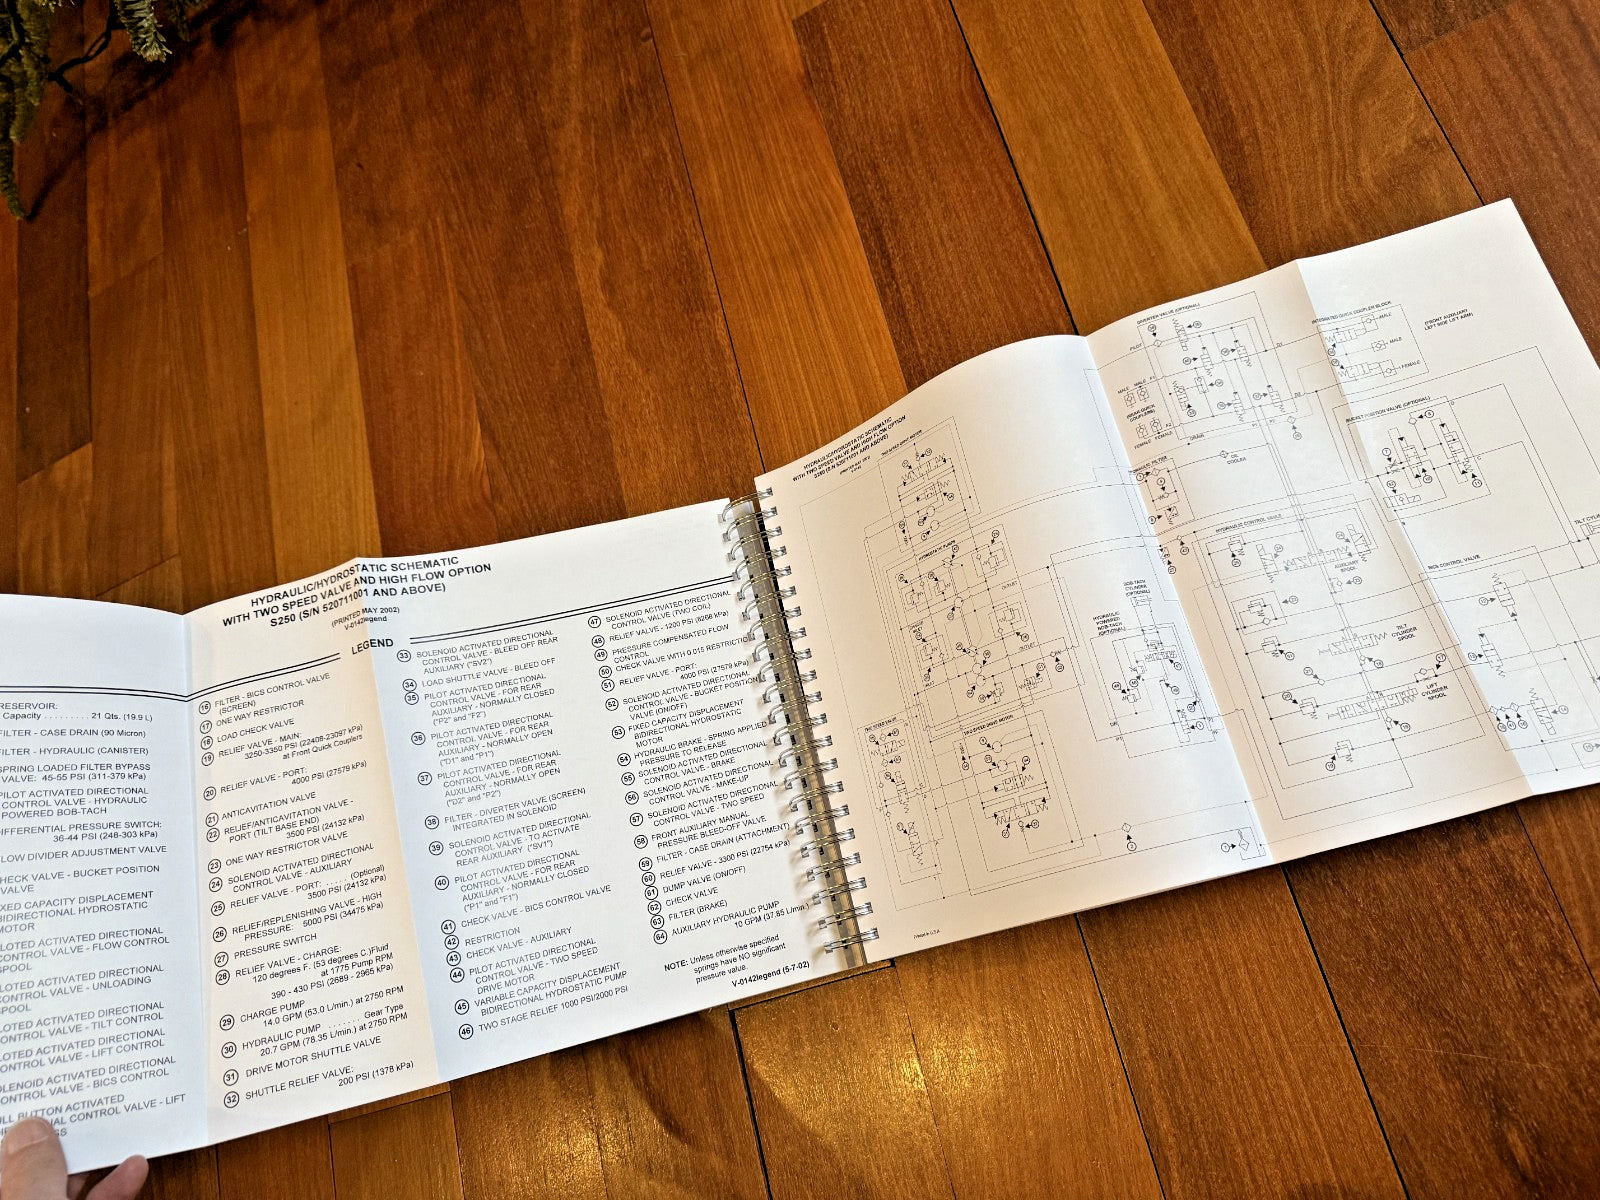 HYDRAULIC/HYDROSTATIC SCHEMATIC
WITH TWO SPEED VALVE AND HIGH FLOW OPTION
S250 (S/N 520711001 AND ABOVE)
(PRINTED MAY 2002)
V-0142legend
LEGEND
RESERVOIR:
Capacity . . . . . . . . . . 21 Qts. (19.9 L)
FILTER - CASE DRAIN (90 Micron)
FILTER - HYDRAULIC (CANISTER)
SPRING LOADED FILTER BYPASS
VALVE: 45-55 PSI (311-379 kPa)
PILOT ACTIVATED DIRECTIONAL
CONTROL VALVE - HYDRAULIC
POWERED BOB-TACH
DIFFERENTIAL PRESSURE SWITCH:
36-44 PSI (248-303 kPa)
LOW DIVIDER ADJUSTMENT VALVE
HECK VALVE - BUCKET POSITION
VALVE
XED CAPACITY DISPLACEMENT
BIDIRECTIONAL HYDROSTATIC
MOTOR
LOTED ACTIVATED DIRECTIONAL
ONTROL VALVE - FLOW CONTROL
SPOOL
LOTED ACTIVATED DIRECTIONAL
ONTROL VALVE - UNLOADING
SPOOL
LOTED ACTIVATED DIRECTIONAL
ONTROL VALVE - TILT CONTROL
LOTED ACTIVATED DIRECTIONAL
ONTROL VALVE - LIFT CONTROL
OLENOID ACTIVATED DIRECTIONAL
ONTROL VALVE - BICS CONTROL
ULL BUTTON ACTIVATED
NAL CONTROL VALVE - LIFT
SS
16 FILTER - BICS CONTROL VALVE
(SCREEN)
17 ONE WAY RESTRICTOR
18 LOAD CHECK VALVE
19 RELIEF VALVE - MAIN:
3250-3350 PSI (22408-23097 kPa)
at Front Quick Couplers
20 RELIEF VALVE - PORT:
4000 PSI (27579 kPa)
21 ANTICAVITATION VALVE
22 RELIEF/ANTICAVITATION VALVE -
PORT (TILT BASE END)
3500 PSI (24132 kPa)
23 ONE WAY RESTRICTOR VALVE
24 SOLENOID ACTIVATED DIRECTIONAL
CONTROL VALVE - AUXILIARY
25 RELIEF VALVE - PORT: . . . . . (Optional)
3500 PSI (24132 kPa)
26 RELIEF/REPLENISHING VALVE - HIGH
PRESSURE: 5000 PSI (34475 kPa)
27 PRESSURE SWITCH
28 RELIEF VALVE - CHARGE:
120 degrees F. (53 degrees C.)Fluid
at 1775 Pump RPM
390 - 430 PSI (2689 - 2965 kPa)
29 CHARGE PUMP
14.0 GPM (53.0 L/min.) at 2750 RPM
30 HYDRAULIC PUMP . . . . . . . Gear Type
20.7 GPM (78.35 L/min.) at 2750 RPM
31 DRIVE MOTOR SHUTTLE VALVE
32 SHUTTLE RELIEF VALVE:
200 PSI (1378 kPa)
33 SOLENOID ACTIVATED DIRECTIONAL
CONTROL VALVE - BLEED OFF REAR
AUXILIARY ("SV2")
34 LOAD SHUTTLE VALVE - BLEED OFF
35 PILOT ACTIVATED DIRECTIONAL
CONTROL VALVE - FOR REAR
AUXILIARY - NORMALLY CLOSED
("P2" and "F2")
36 PILOT ACTIVATED DIRECTIONAL
CONTROL VALVE - FOR REAR
AUXILIARY - NORMALLY OPEN
("D1" and "P1")
37 PILOT ACTIVATED DIRECTIONAL
CONTROL VALVE - FOR REAR
AUXILIARY - NORMALLY OPEN
("D2" and "P2")
38 FILTER - DIVERTER VALVE (SCREEN)
INTEGRATED IN SOLENOID
39 SOLENOID ACTIVATED DIRECTIONAL
CONTROL VALVE - TO ACTIVATE
REAR AUXILIARY ("SV1")
40 PILOT ACTIVATED DIRECTIONAL
CONTROL VALVE - FOR REAR
AUXILIARY - NORMALLY CLOSED
("P1" and "F1")
41 CHECK VALVE - BICS CONTROL VALVE
42 RESTRICTION
43 CHECK VALVE - AUXILIARY
44 PILOT ACTIVATED DIRECTIONAL
CONTROL VALVE - TWO SPEED
DRIVE MOTOR
45 VARIABLE CAPACITY DISPLACEMENT
BIDIRECTIONAL HYDROSTATIC PUMP
46 TWO STAGE RELIEF 1000 PSI/2000 PSI
47 SOLENOID ACTIVATED DIRECTIONAL
CONTROL VALVE (TWO COIL)
48 RELIEF VALVE - 1200 PSI (8268 kPa)
49 PRESSURE COMPENSATED FLOW
CONTROL
50 CHECK VALVE WITH 0.015 RESTRICTIO
51 RELIEF VALVE - PORT:
4000 PSI (27579 kPa)
52 SOLENOID ACTIVATED DIRECTIONAL
CONTROL VALVE - BUCKET POSITION
VALVE (ON/OFF)
53 FIXED CAPACITY DISPLACEMENT
BIDIRECTIONAL HYDROSTATIC
MOTOR
54 HYDRAULIC BRAKE - SPRING APPLIED
PRESSURE TO RELEASE
55 SOLENOID ACTIVATED DIRECTIONAL
CONTROL VALVE - BRAKE
56 SOLENOID ACTIVATED DIRECTIONAL
CONTROL VALVE - MAKE-UP
57 SOLENOID ACTIVATED DIRECTIONAL
CONTROL VALVE - TWO SPEED
58 FRONT AUXILIARY MANUAL
PRESSURE BLEED-OFF VALVE
59 FILTER - CASE DRAIN (ATTACHMENT)
60 RELIEF VALVE - 3300 PSI (22754 kPa)
61 DUMP VALVE (ON/OFF)
62 CHECK VALVE
63 FILTER (BRAKE)
64 AUXILIARY HYDRAULIC PUMP
10 GPM (37.85 L/min.)
NOTE: Unless otherwise specified
springs have NO significant
pressure value.
V-0142legend (5-7-02)
HYDRAULIC/HYDROSTATIC SCHEMATIC
WITH TWO SPEED VALVE AND HIGH FLOW OPTION
S250 (S/N 520711001 AND ABOVE)
DIVERTER VALVE (OPTIONAL)
PILOT
MALE MALE
(REAR QUICK
COUPLERS)
FEMALE FEMALE
DRAIN
OIL
COOLER
INTEGRATED QUICK COUPLER BLOCK
MALE
MALE
FEMALE
(FRONT AUXILIARY
LEFT SIDE LIFT ARM)
BUCKET POSITION VALVE (OPTIONAL)
HYDRAULIC CONTROL VALVE
AUXILIARY
SPOOL
TILT
CYLINDER
SPOOL
LIFT
CYLINDER
SPOOL
BICS CONTROL VALVE
BOB-TACH
CYLINDER
(OPTIONAL)
HYDRAULIC
POWERED
BOB-TACH
(OPTIONAL)
OUTLET
OUTLET
Printed in U.S.A.